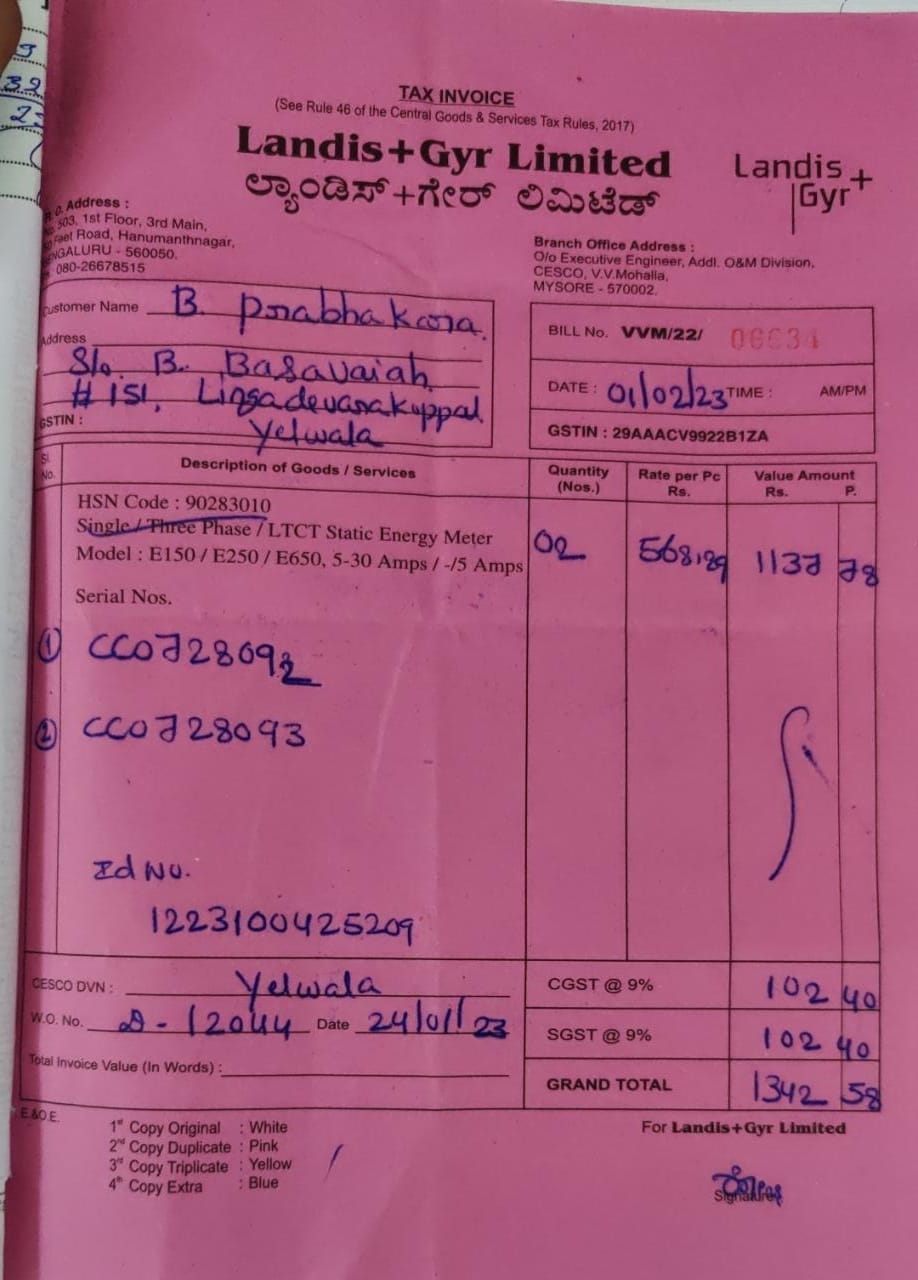 TAX INVOICE
(See Rule 46 of the Central Goods & Services Tax Rules, 2017)
Landis+Gyr Limited
ಲ್ಯಾಂಡಿಸ್+ಗೇರ್ ಲಿಮಿಟೆಡ್
Landis+
Gyr
Address :
503, 1st Floor, 3rd Main,
Feet Road, Hanumanthnagar,
BENGALURU - 560050.
080-26678515
Branch Office Address :
O/o Executive Engineer, Addl. O&M Division,
CESCO, V.V.Mohalla,
MYSORE - 570002.
Customer Name B. Prabhakara.
Address
S/o. B. Basavaiah
# 151, Lingadevarakoppal
GSTIN :
Yelwala
BILL No. VVM/22/ 06634
DATE : 01/02/23 TIME : AM/PM
GSTIN : 29AAACV9922B1ZA
Sl. No. Description of Goods / Services Quantity (Nos.) Rate per Pc Rs. Value Amount Rs. P.
HSN Code : 90283010
Single / Three Phase / LTCT Static Energy Meter
Model : E150 / E250 / E650, 5-30 Amps / -/5 Amps
02 568.89 1137 78
Serial Nos.
① CC0728092
② CC0728093
Id No.
1223100425209
CESCO DVN : Yelwala
W.O. No. D-12044 Date 24/01/23
Total Invoice Value (In Words) :
CGST @ 9% 102 40
SGST @ 9% 102 40
GRAND TOTAL 1342 58
E.&O.E.
1st Copy Original : White
2nd Copy Duplicate : Pink
3rd Copy Triplicate : Yellow
4th Copy Extra : Blue
For Landis+Gyr Limited
Signature